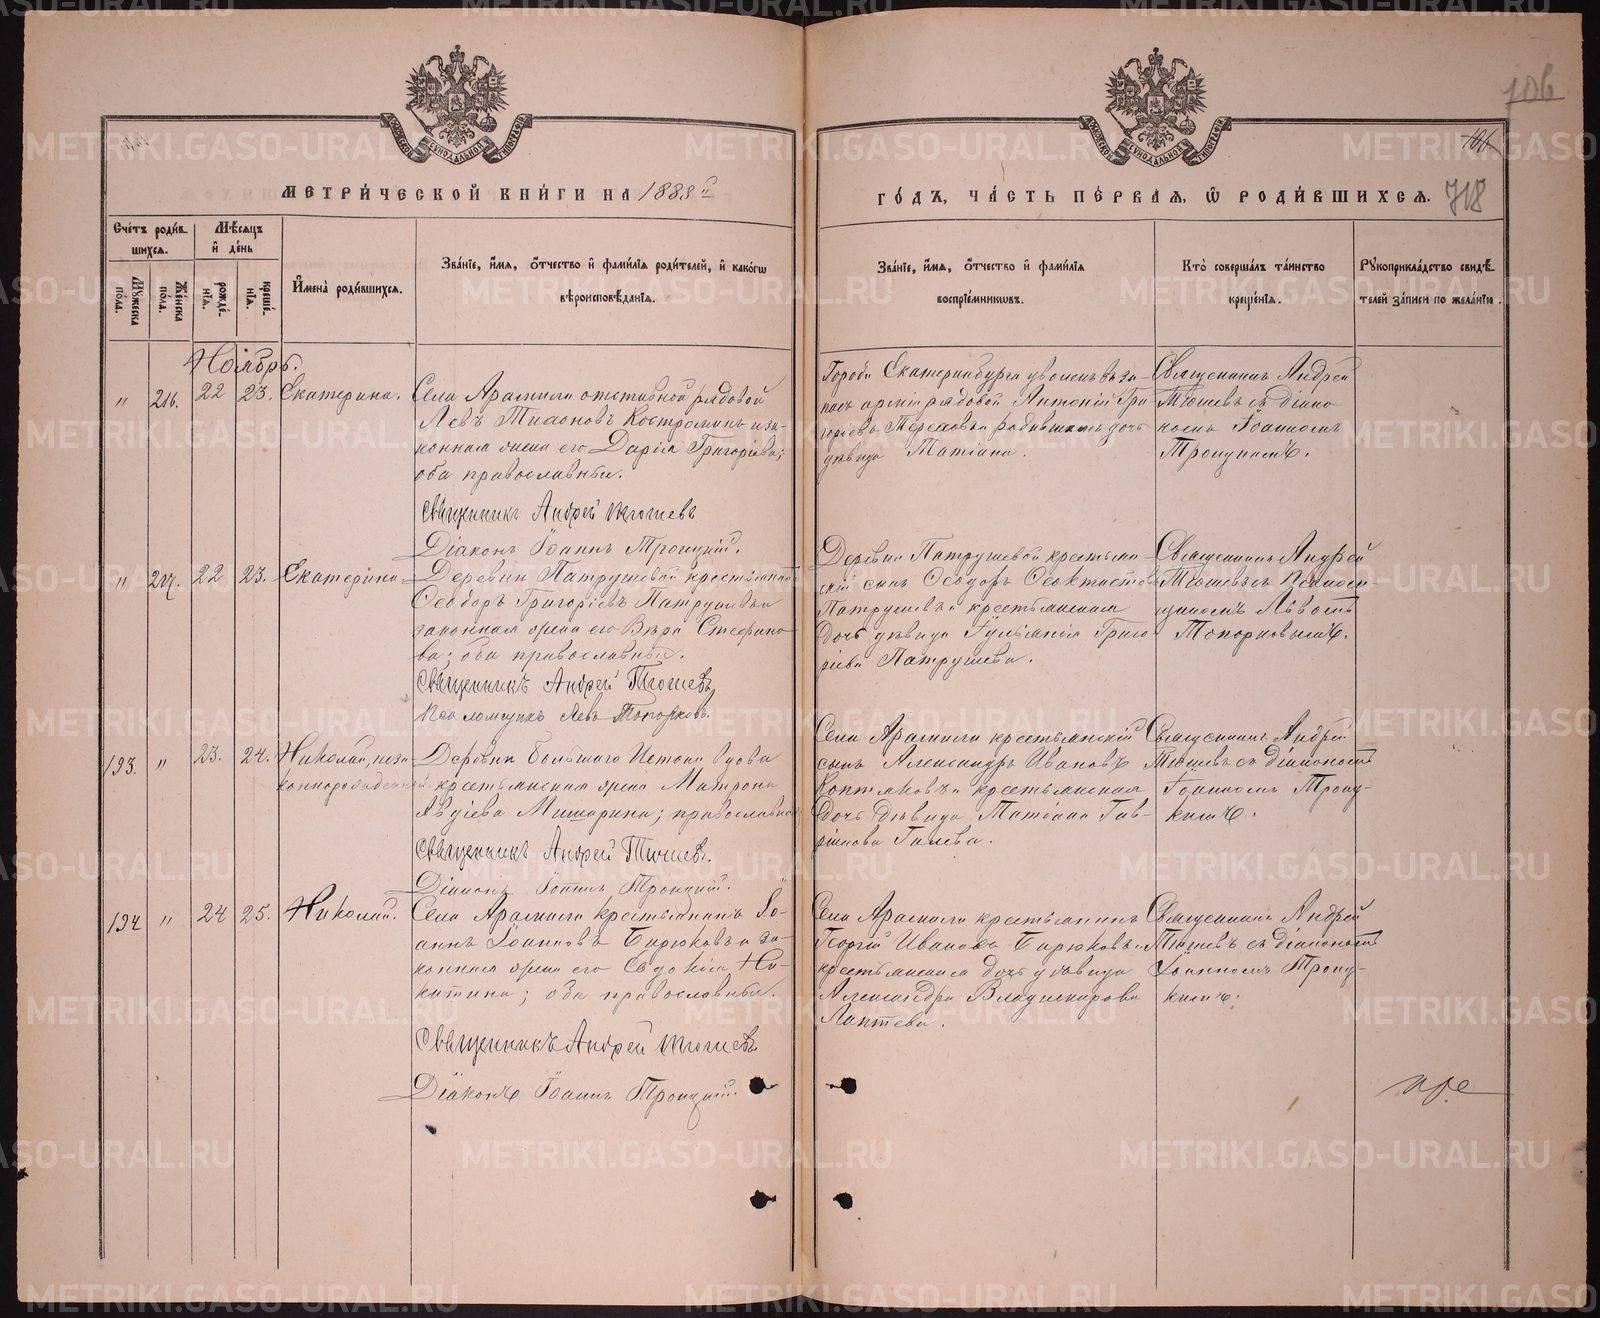 106
106
718
МЕТРИЧЕСКОЙ КНИГИ НА 1888 й
ГОДЪ, ЧАСТЬ ПЕРВАЯ, Ѡ РОДИВШИХСЯ.
Счетъ родившихся.
Мужеска пола.
Женска пола.
Мѣсяцъ и день
рожденія.
крещенія.
Имена родившихся.
Званіе, имя, отчество и фамилія родителей, и какогѡ
вѣроисповѣданія.
Званіе, имя, отчество и фамилія
воспріемниковъ.
Кто совершалъ таинство
крещенія.
Рукоприкладство свидѣ-
телей записи по желанію.
Ноябрь.
" 216. 22 23. Екатерина.
Села Арамили отставной рядовой
Левъ Тихоновъ Костроминъ и за-
конная жена его Дарія Григоріева;
оба православные.
Священникъ Андрей Тюшевъ
Діаконъ Іоаннъ Троицкій.
Города Екатеринбурга уволен. въ за-
пасъ арміи рядовой Антоній Гри-
горіевъ дочь
дѣвица Татіана.
Священникъ Андрей
Тюшевъ съ діако-
номъ Іоанномъ
Троицкимъ.
" 217. 22 23. Екатерина
Деревни Патрушевой крестьянинъ
Ѳеодоръ Григоріевъ Патрушевъ и
законная жена его Вѣра Стефано-
ва; оба православные.
Священникъ Андрей Тюшевъ
Псаломщикъ Левъ Топорковъ.
Деревни Патрушевой крестьян-
скій сынъ Ѳеодоръ Ѳеоктистовъ
Патрушевъ и крестьянская
дочь дѣвица Іуліанія Григо-
ріева Патрушева.
Священникъ Андрей
Тюшевъ съ Псалом-
щикомъ Львомъ
Топорковымъ.
193. " 23. 24. Николай, неза-
коннорожденный
Деревни Большаго Истока вдова
крестьянская жена Матрона
Авдіева Мишарина; православная
Священникъ Андрей Тюшевъ.
Діаконъ Іоаннъ Троицкій.
Села Арамили крестьянскій
сынъ Александръ Ивановъ
Коптяковъ и крестьянская
дочь дѣвица Татіана Гав-
ріилова Гилева.
Священникъ Андрей
Тюшевъ съ діакономъ
Іоанномъ Троиц-
кимъ.
194 " 24 25. Николай.
Села Арамили крестьянинъ Іо-
аннъ Іоанновъ Бирюковъ и за-
конная жена его Евдокія Ни-
китина; оба православные.
Священникъ Андрей Тюшевъ
Діаконъ Іоаннъ Троицкій.
Села Арамили крестьянинъ
Георгій Ивановъ Бирюковъ и
крестьянская дочь дѣвица
Александра Владимирова
Лаптева.
Священникъ Андрей
Тюшевъ съ діакономъ
Іоанномъ Троиц-
кимъ.
METRIKI.GASO-URAL.RU